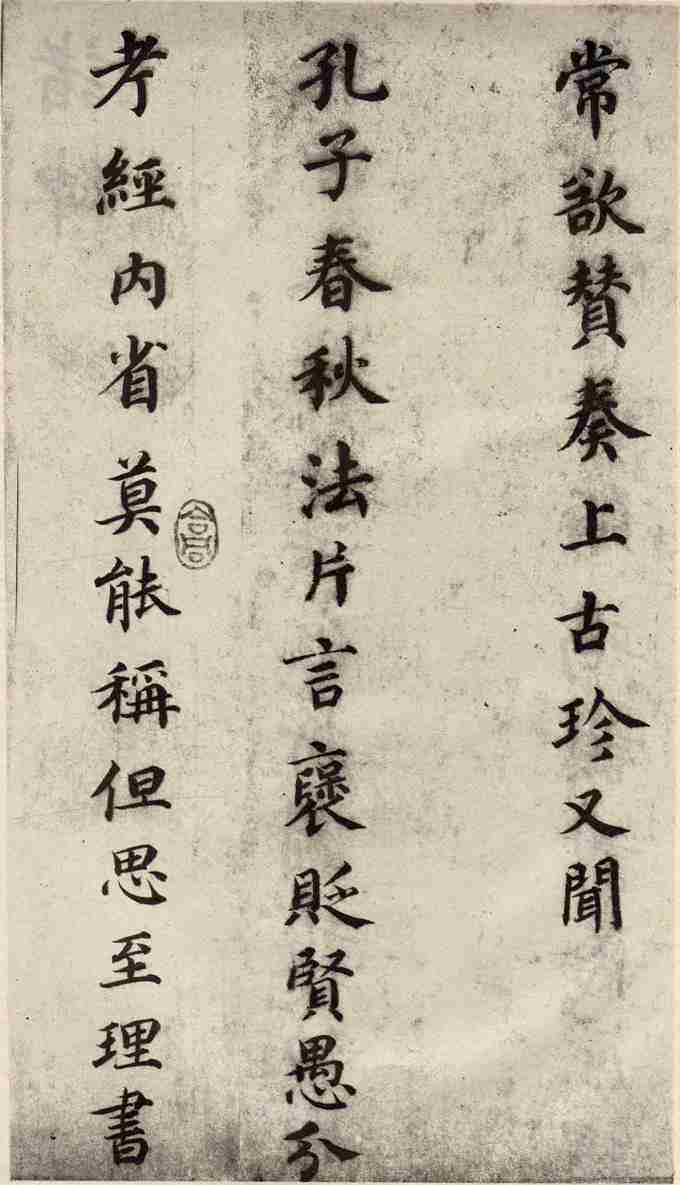 常欲賛奏上古珍又聞
孔子春秋法片言褒貶賢愚分
考經內省莫能稱但思至理書